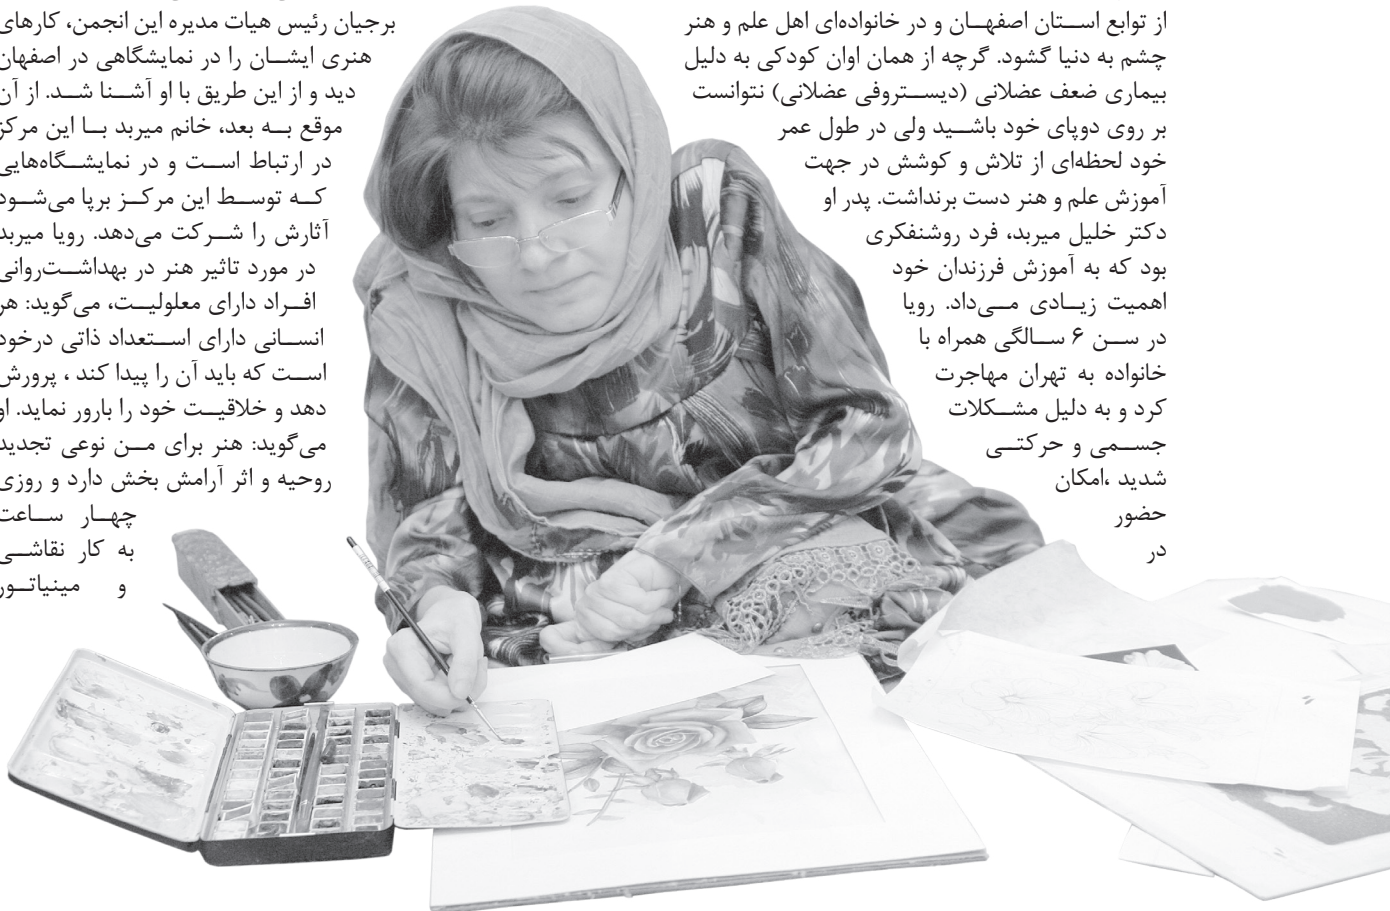 از توابع استان اصفهان و در خانواده‌ای اهل علم و هنر
چشم به دنیا گشود. گرچه از همان اوان کودکی به دلیل
بیماری ضعف عضلانی (دیستروفی عضلانی) نتوانست
بر روی دوپای خود باشید ولی در طول عمر
خود لحظه‌ای از تلاش و کوشش در جهت
آموزش علم و هنر دست برنداشت. پدر او
دکتر خلیل میربد، فرد روشنفکری
بود که به آموزش فرزندان خود
اهمیت زیادی می‌داد. رویا
در سن ۶ سالگی همراه با
خانواده به تهران مهاجرت
کرد و به دلیل مشکلات
جسمی و حرکتی
شدید ،امکان
حضور
در
برجیان رئیس هیات مدیره این انجمن، کارهای
هنری ایشان را در نمایشگاهی در اصفهان
دید و از این طریق با او آشنا شد. از آن
موقع به بعد، خانم میربد با این مرکز
در ارتباط است و در نمایشگاه‌هایی
که توسط این مرکز برپا می‌شود
آثارش را شرکت می‌دهد. رویا میربد
در مورد تاثیر هنر در بهداشت‌روانی
افراد دارای معلولیت، می‌گوید: هر
انسانی دارای استعداد ذاتی درخود
است که باید آن را پیدا کند ، پرورش
دهد و خلاقیت خود را بارور نماید. او
می‌گوید: هنر برای من نوعی تجدید
روحیه و اثر آرامش بخش دارد و روزی
چهار ساعت
به کار نقاشی
و مینیاتور